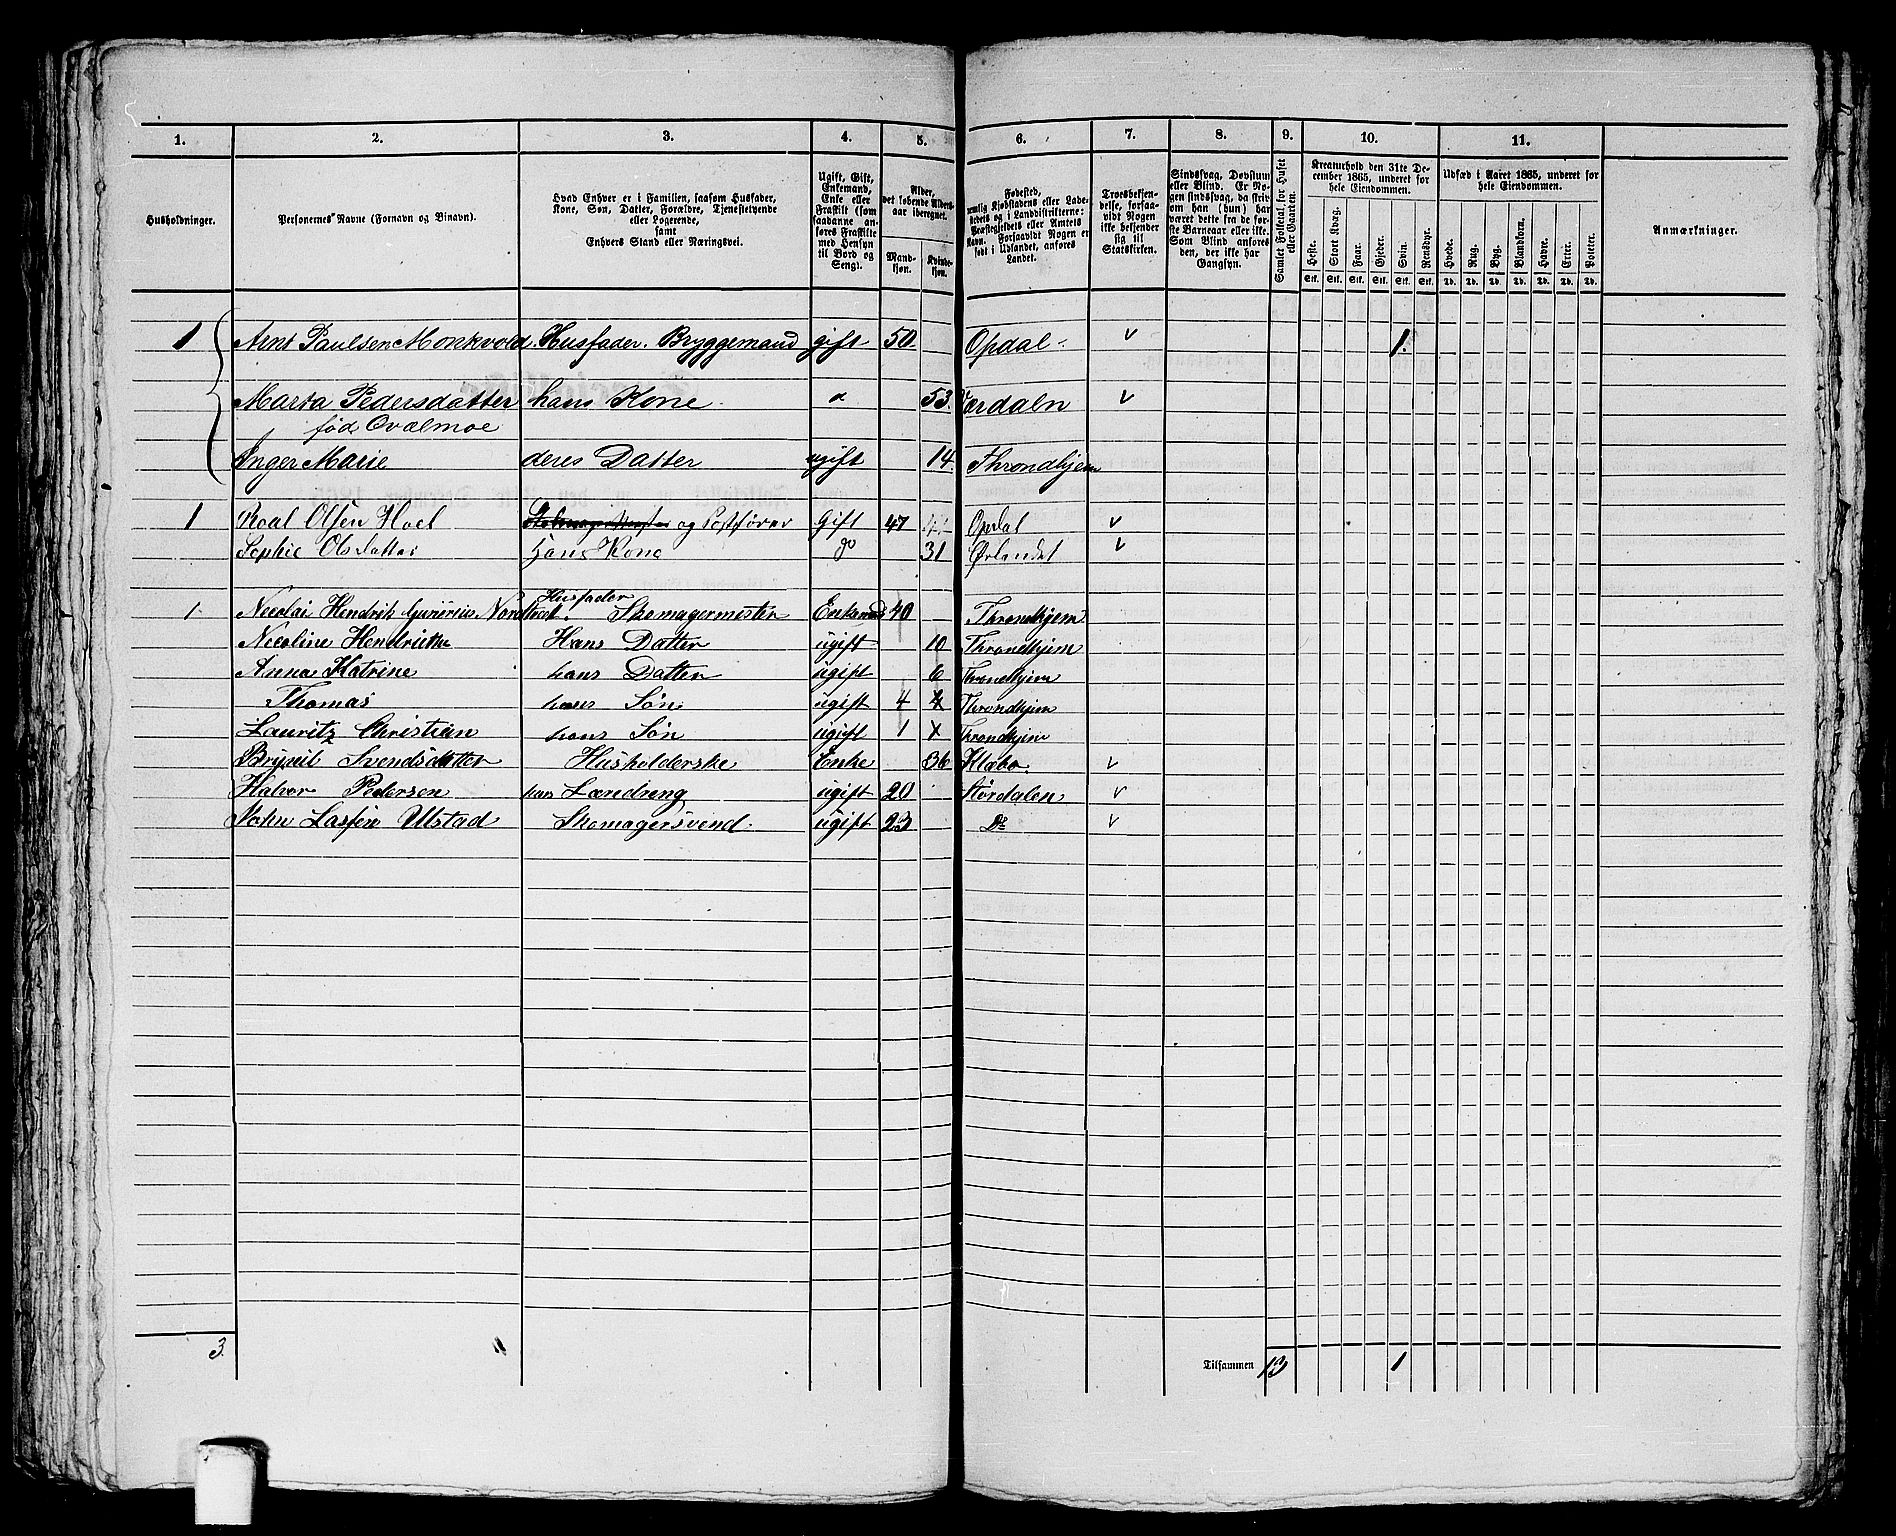 1. 2. 3. 4. 5. 6. 7. 8. 9. 10. 11.
Husholdninger.
Personernes Navne (Fornavn og Binavn).
Hvad Enhver er i Familien, saasom Husfader,
Kone, Søn, Datter, Forældre, Tjenestetyende
eller Logerende,
samt
Enhvers Stand eller Næringsvei.
Ugift, Gift,
Enkemand,
Enke eller
Fraskilt (som
saadanne an-
føres Fraskilte
med Hensyn
til Bord og
Seng).
Alder,
det løbende Alders-
aar iberegnet.
Mand-
kjøn.
Kvinde-
kjøn.
Fødested,
nemlig Kjøbstadens eller Lade-
stedets og i Landdistrikterne:
Præstegjeldets eller Amtets
Navn. Forsaavidt Nogen er
født i Udlandet, anføres
Landet.
Troesbekjen-
delse, forsaa-
vidt Nogen
ikke bekjender
sig til
Statskirken.
Sindssvag, Døvstum
eller Blind. Er No-
gen sindssvag, da skriv
om han (hun) har
været dette fra de før-
ste Barneaar eller ikke.
Som Blind anføres
den, der ikke har
Gangsyn.
Samlet Folketal, for Huset
eller Gaarden.
Kreaturhold den 31te De-
cember 1865, underet for
hele Eiendommen.
Heste. Stort Kvæg. Faar. Gjeder. Svin. Rensdyr.
Stk. Stk. Stk. Stk. Stk. Stk.
Udsæd i Aaret 1865, underet for
hele Eiendommen.
Hvede. Rug. Byg. Blandkorn. Havre. Erter. Poteter.
Td. Td. Td. Td. Td. Td. Td.
Anmærkninger.
1 Arnt Paulsen Monkvold. Husfader. Bryggemand gift 50 Opdal. v 1.
Marta Pedersdatter hans Kone. " 53. Værdaln v
fød Qvælmoe
Inger Marie deres Datter ugift 14. Throndhjem
1 Roal Olsen Hoel og Postfører Gift 47 Opdal v
Sophie Olsdatter Hans Kone do 31 Ørlandet v
Husfader
1 Nicolai Hendrik Skomagermester Enkemd 40 Throndhjem
Nicoline Hendrikke Hans Datter ugift 10 Throndhjem
Anna Katrine hans Datter ugift 6 Throndhjem
Thomas hans Søn ugift 4 Throndhjem
Lauritz Christian hans Søn ugift 1 Throndhjem
Svendsdatter Husholderske Enke 36 Klæbo. v
Halvor Pedersen hans Lærdreng ugift 20 Størdalen v
John Lassen Ulstad Skomagersvend. ugift 23 Do v
3. Tilsammen 13 1